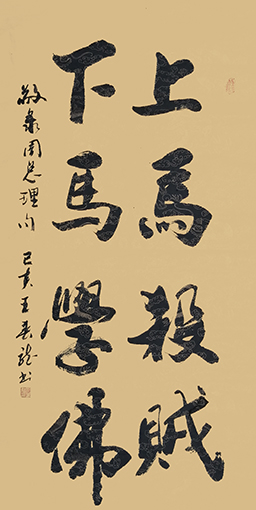 上馬殺賊
下馬學佛
敬錄周总理句 己亥王春龍書